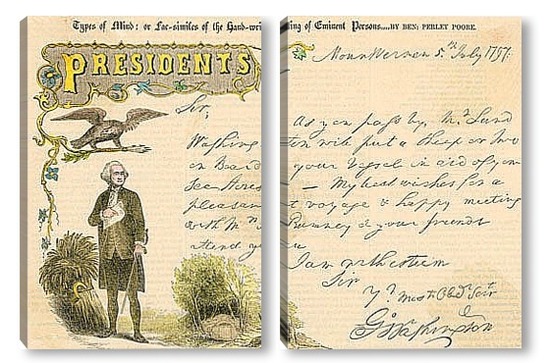 Types of Mind: or Fac-similes of the Hand-wri ing of Eminent Persons....BY BEN: PERLEY POORE.
PRESIDENTS
Mount Vernon 5.th July 1797.
Sir,
As you pass by, Mr. Lund
Washing ton will put a Sheep or two
on Board your Vessel in aid of your
Sea Stores — My best wishes for a
pleasan t voyage & happy meeting
with Mrs Rumney & your friends
attend you
I am with esteem
Sir
Yr. Most Obedt Servt
Go Washington